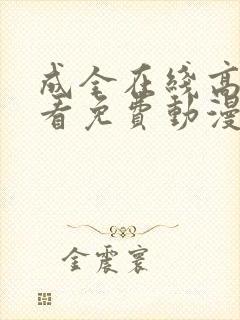 成全在线高
看免費動漫
金震寰